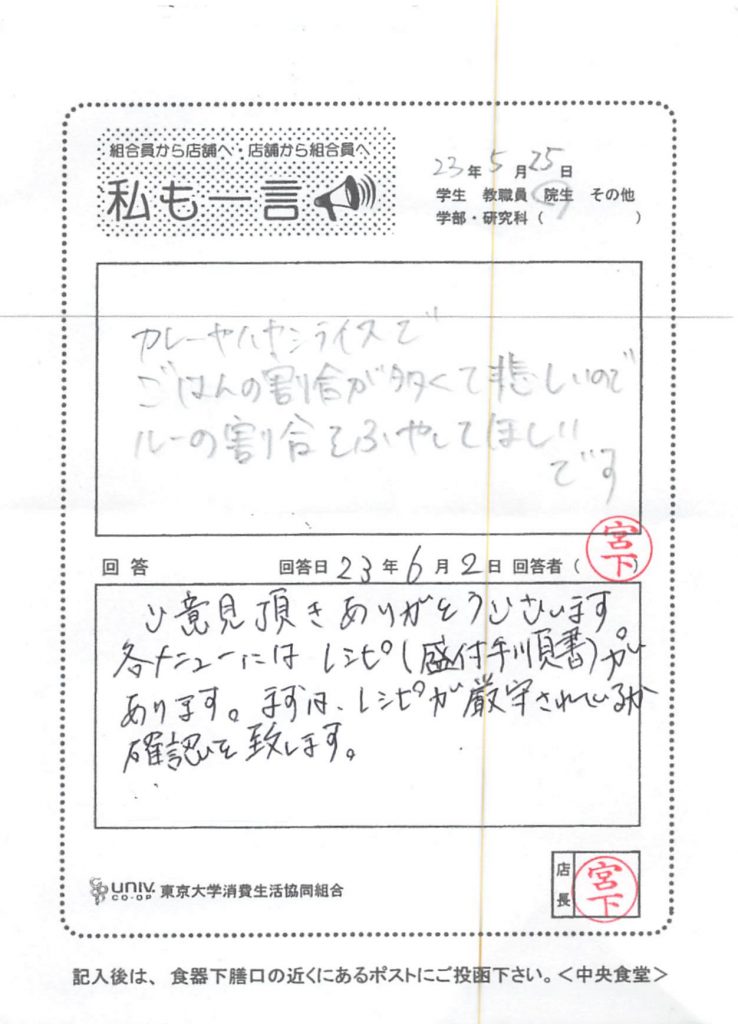 組合員から店舗へ・店舗から組合員へ
私も一言
23年5月25日
学生 教職員 院生 その他
学部・研究科（ ）
カレーやハヤシライスで
ごはんの割合が多くて悲しいので
ルーの割合をふやしてほしい
です
回答 回答日 23年6月2日 回答者（宮下）
ご意見頂きありがとうございます
各メニューにはレシピ（盛付手順書）が
あります。まずは、レシピが厳守されているか
確認を致します。
UNIV. CO-OP 東京大学消費生活協同組合
店長 宮下
記入後は、食器下膳口の近くにあるポストにご投函下さい。＜中央食堂＞